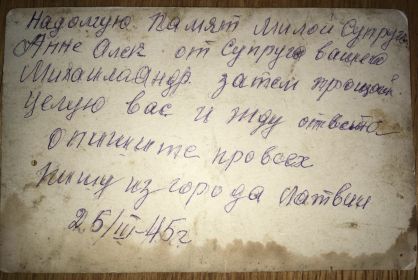 Надолгую Памят Милой Супруге
Анне Алек от Супруга вашего
МихаилаАндр. затем прощай
Целую вас и жду ответа
опишите провсех
пишу из города Латвии
25/III-45г